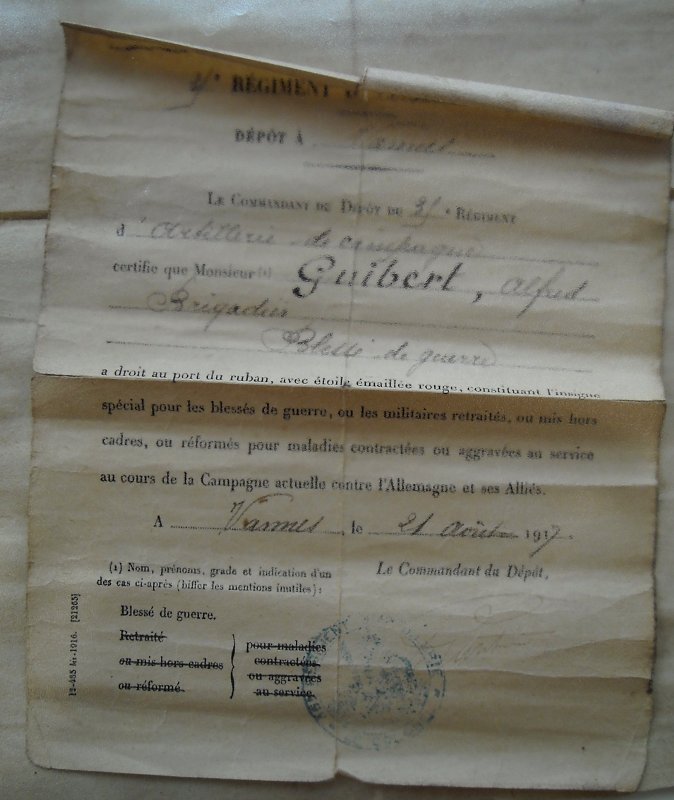 ° RÉGIMENT
DÉPÔT À Vannes
LE COMMANDANT DU DÉPÔT DU 35 ° RÉGIMENT
d'Artillerie de campagne
certifie que Monsieur (1) Guibert, Alfred
Brigadier
Blessé de guerre
a droit au port du ruban, avec étoile émaillée rouge, constituant l'insigne
spécial pour les blessés de guerre, ou les militaires retraités, ou mis hors
cadres, ou réformés pour maladies contractées ou aggravées au service
au cours de la Campagne actuelle contre l'Allemagne et ses Alliés.
A Vannes, le 21 août 1917.
(1) Nom, prénoms, grade et indication d'un
des cas ci-après (biffer les mentions inutiles):
Le Commandant du Dépôt,
Blessé de guerre.
Retraité
ou mis hors cadres
ou réformé.
pour maladies
contractées
ou aggravées
au service.
12-465 bis-1916. [21265]